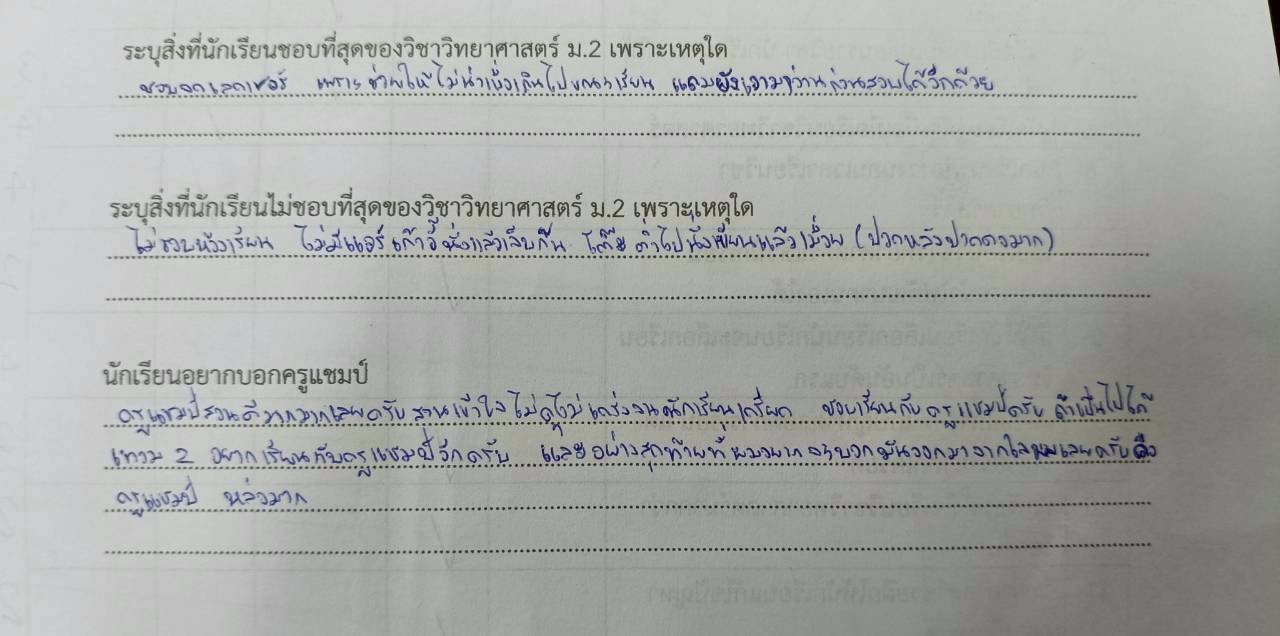 ระบุสิ่งที่นักเรียนชอบที่สุดของวิชาวิทยาศาสตร์ ม.2 เพราะเหตุใด
ชอบจดเลกเชอร์ เพราะช่วยให้ไม่น่าเบื่อเกินไปขณะเรียน แถมยังเอามาอ่านก่อนสอบได้อีกด้วย
ระบุสิ่งที่นักเรียนไม่ชอบที่สุดของวิชาวิทยาศาสตร์ ม.2 เพราะเหตุใด
ไม่ชอบห้องเรียน ไม่มีแอร์ เก้าอี้นั่งแล้วเจ็บก้น โต๊ะต่ำไปนั่งเขียนแล้วเมื่อย (ปวดหลังปวดคอมาก)
นักเรียนอยากบอกครูแชมป์
ครูแชมป์สอนดีมากมากเลยครับ สอนเข้าใจ ไม่ดุไม่เคร่งจนนักเรียนเครียด ชอบเรียนกับครูแชมป์ครับ ถ้าเป็นไปได้
เทอม 2 อยากเรียนกับครูแชมป์อีกครับ และอย่างสุดท้ายที่ผมอยากจะบอกมันออกมาจากใจผมเลยครับคือ
ครูแชมป์ หล่อมาก